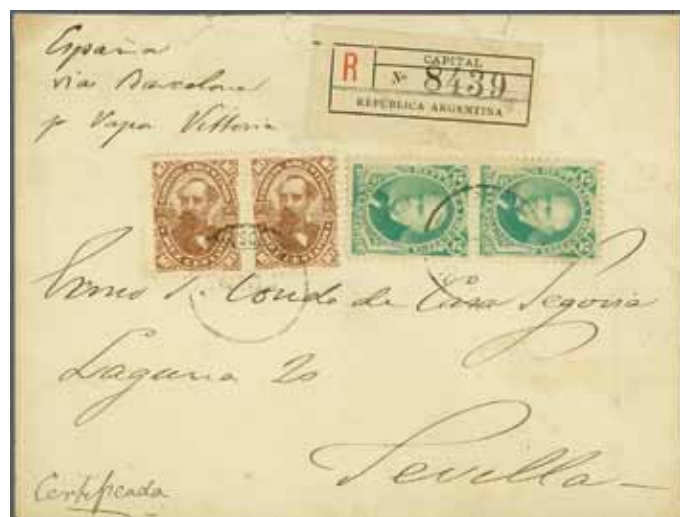 España
via Barcelona
p Vapor Vittoria
R
CAPITAL
Nº 8439
REPÚBLICA ARGENTINA
Exmo Sr. Conde de Casa Segovia
Laguna 20
Sevilla
Certificada